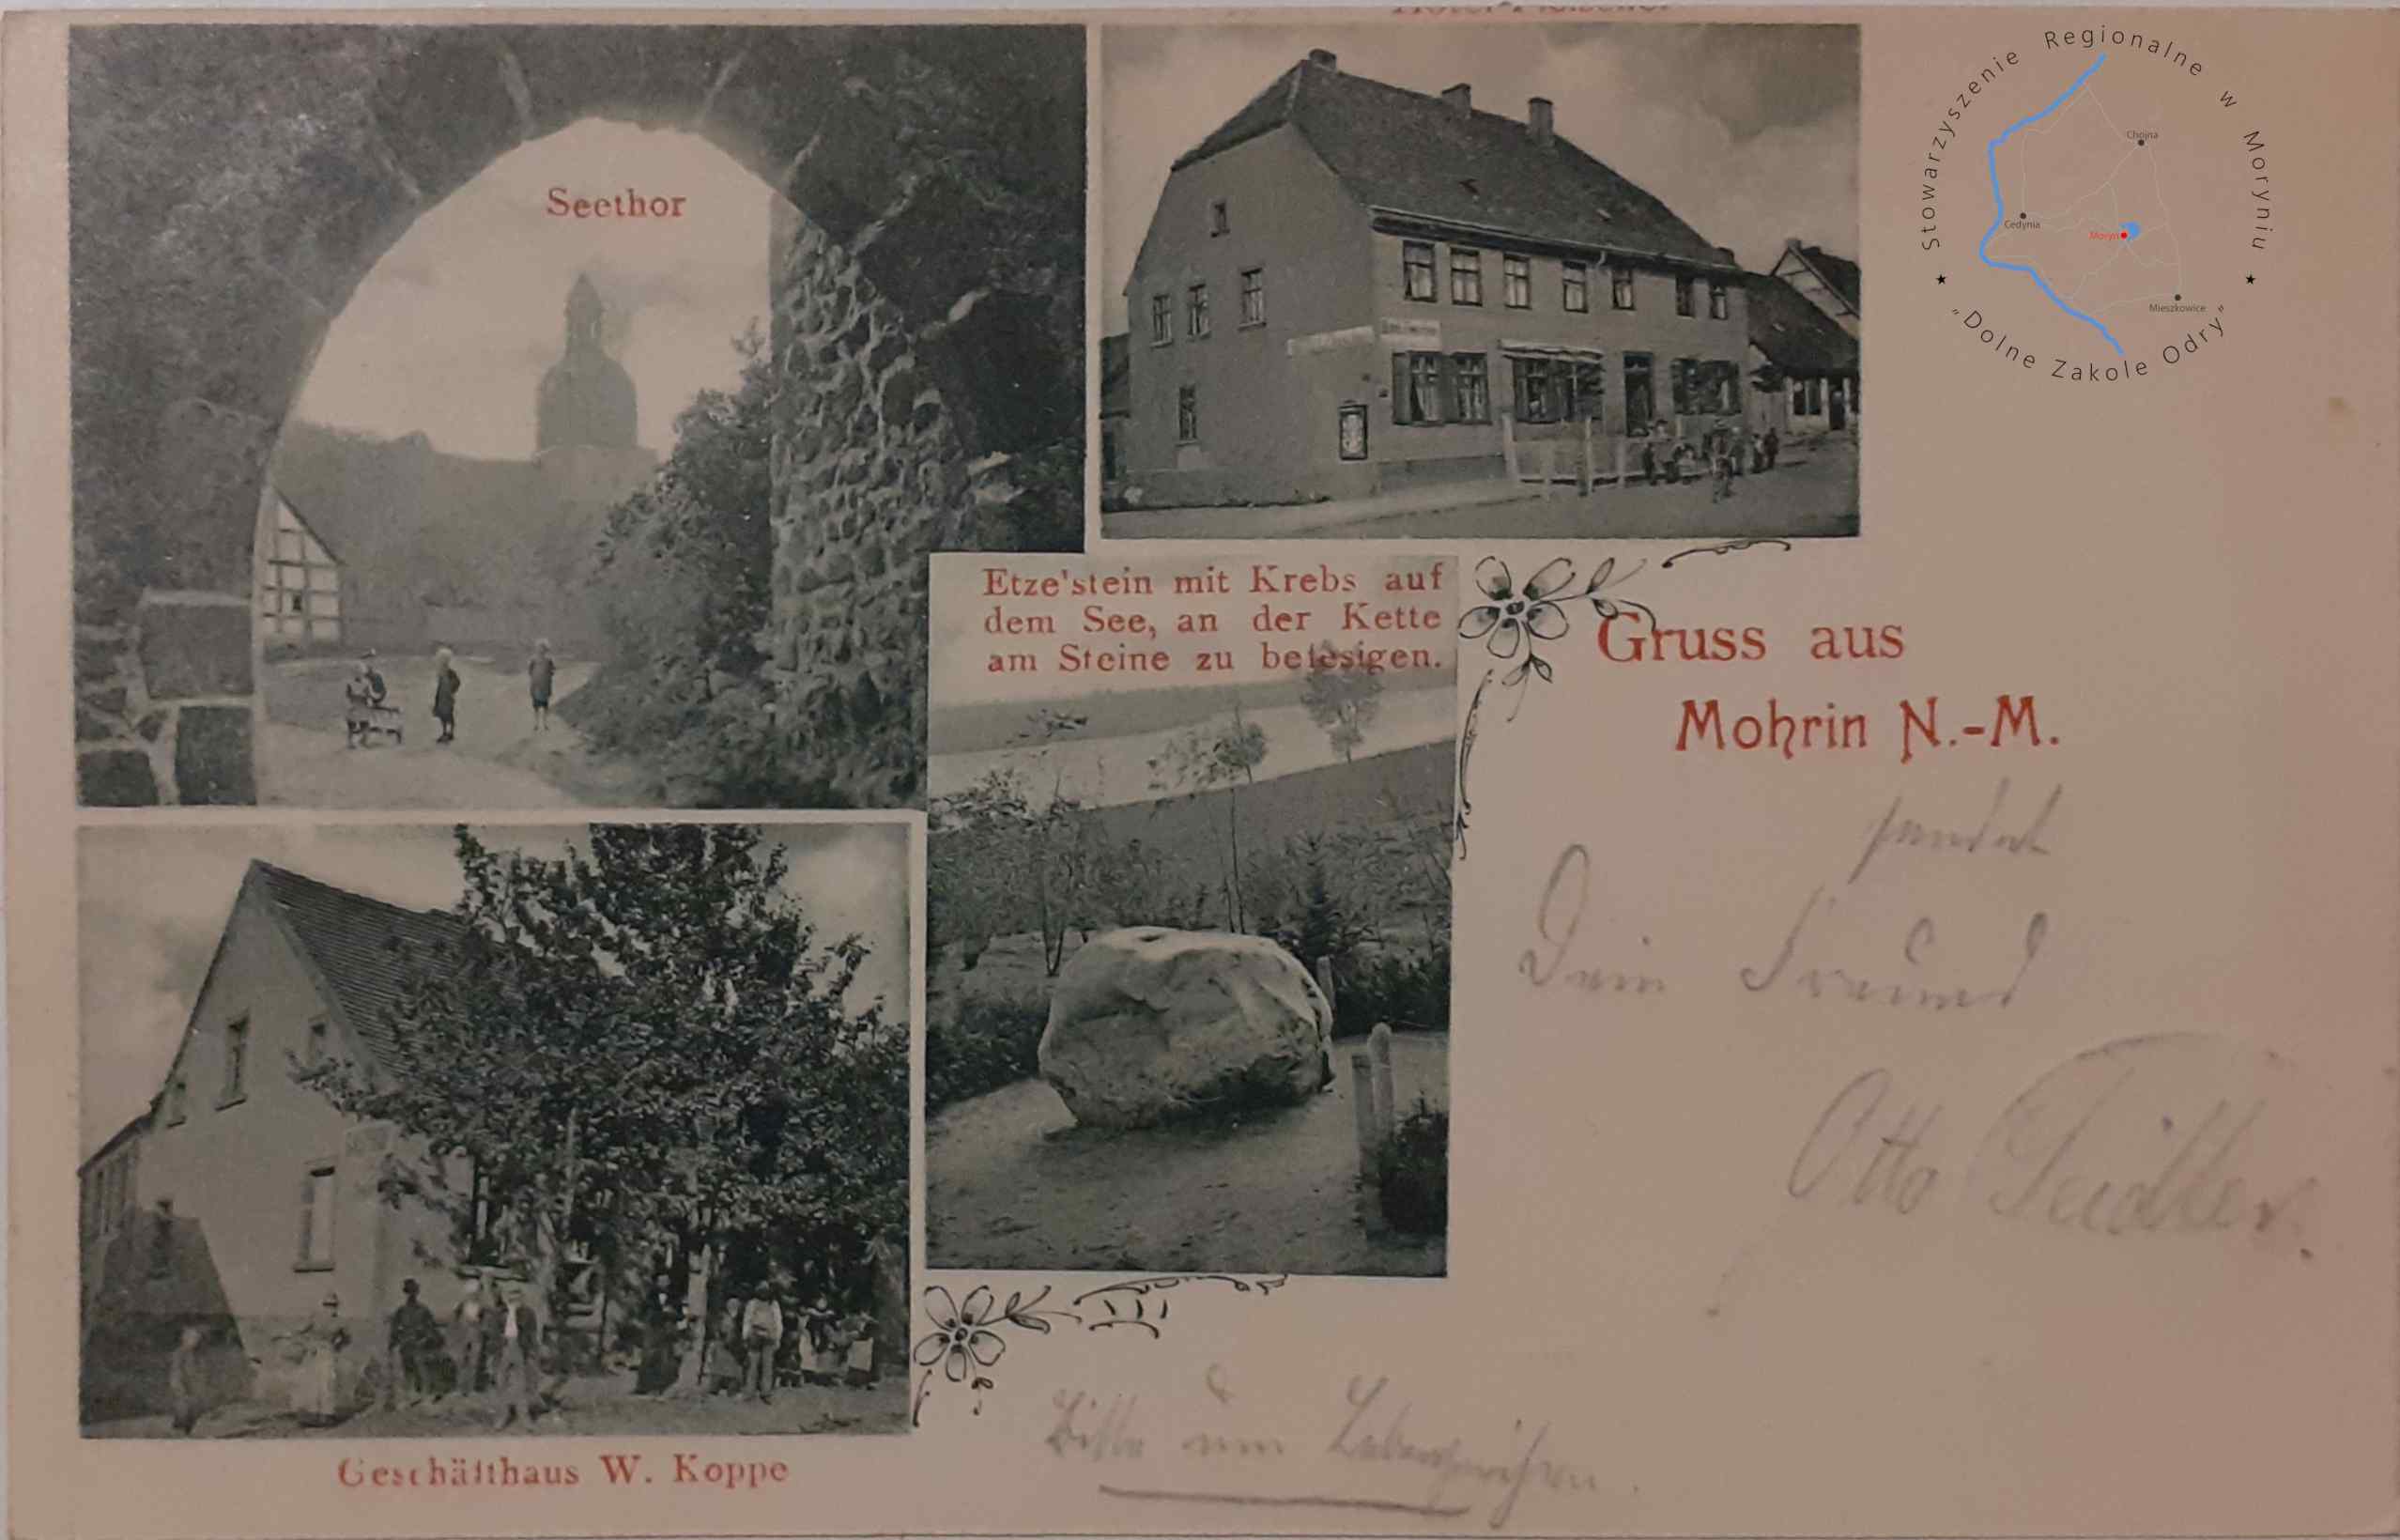 Seethor
Etze'stein mit Krebs auf
dem See, an der Kette
am Steine zu befesigen.
Gruss aus
Mohrin N.-M.
sendet
Dein Freund
Otto
Geschäfthaus W. Koppe
Bitte um
Stowarzyszenie Regionalne w Moryniu
"Dolne Zakole Odry"
Chojna
Cedynia
Moryń
Mieszkowice